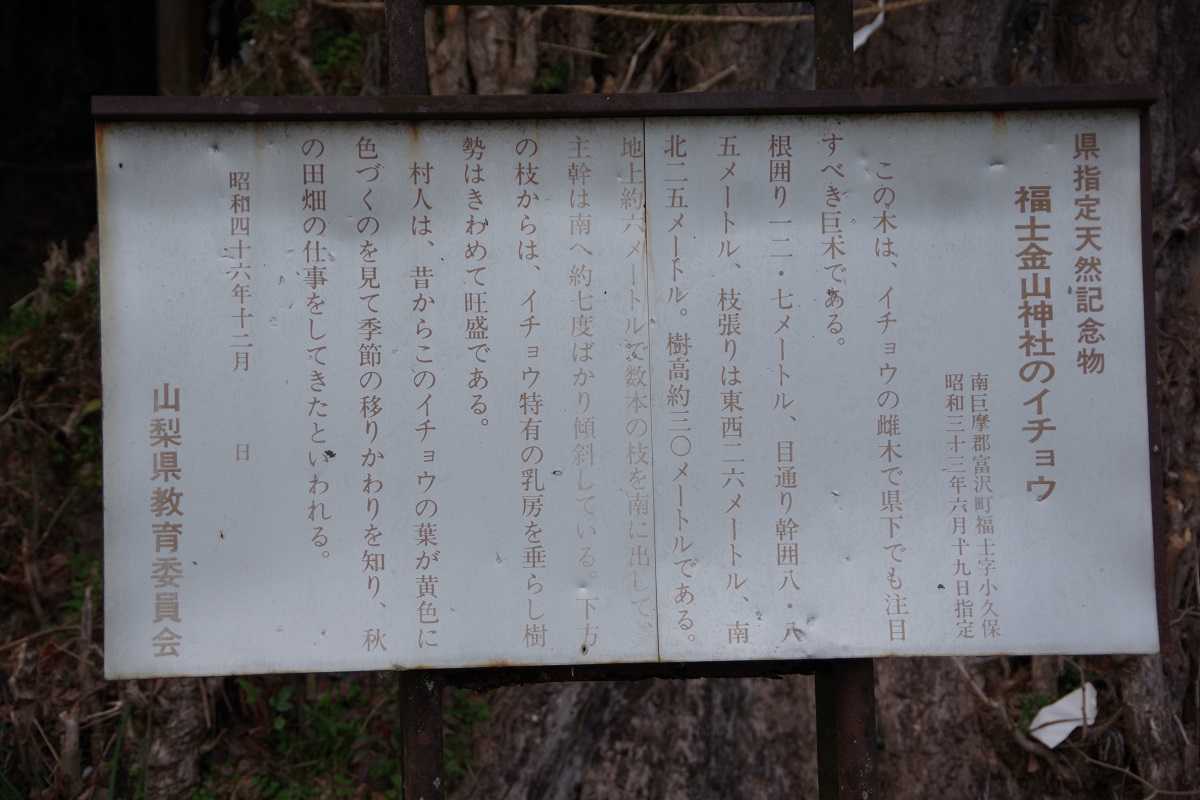 県指定天然記念物
福士金山神社のイチョウ
南巨摩郡富沢町福士字小久保
昭和三十三年六月十九日指定
この木は、イチョウの雌木で県下でも注目
すべき巨木である。
根囲り一二・七メートル、目通り幹囲八・八
五メートル、枝張りは東西二六メートル、南
北二五メートル。樹高約三〇メートルである。
地上約六メートルで数本の枝を南に出して、
主幹は南へ約七度ばかり傾斜している。下方
の枝からは、イチョウ特有の乳房を垂らし樹
勢はきわめて旺盛である。
村人は、昔からこのイチョウの葉が黄色に
色づくのを見て季節の移りかわりを知り、秋
の田畑の仕事をしてきたといわれる。
昭和四十六年十二月　日
山梨県教育委員会